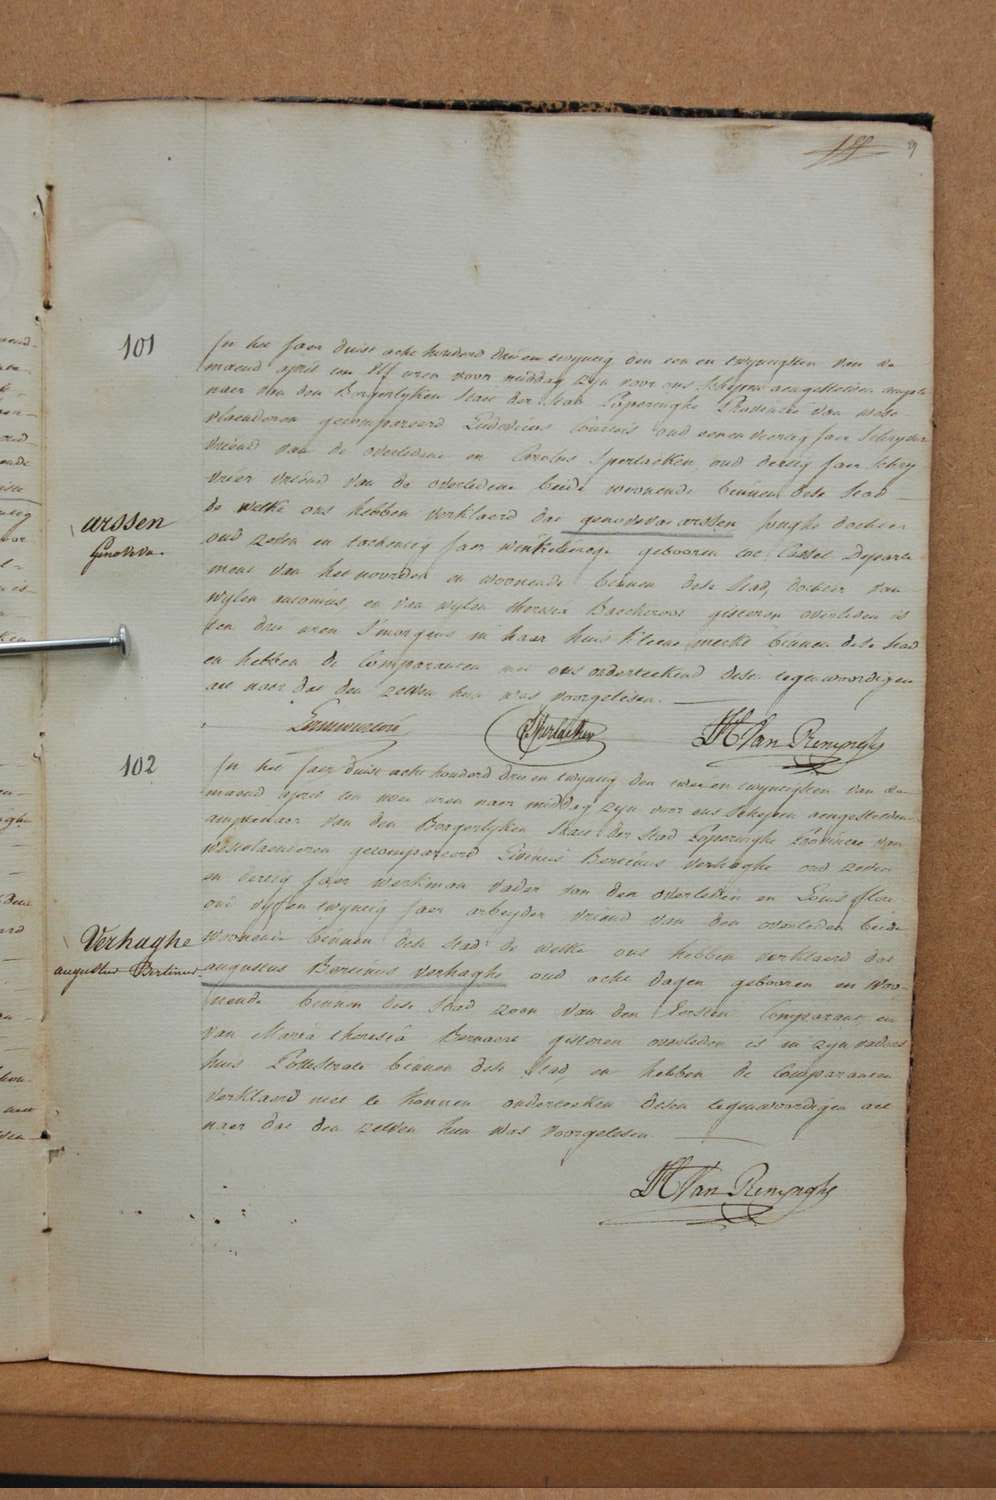 101
In het Jaer duist acht honderd drie en twyntig den een en twyntigsten van de
maend april ten elf uren voor middag zyn voor ons Schepen aengestelden ampte
naer van den Borgerlyken Staet der Stad Poperinghe Provintie van west
vlaenderen gecompareerd Ludovicus Courtois oud eenenveertig Jaer Schryver
vriend van de overledene en Carolus Sperlaeken oud dertig Jaer Schry
vver vriend van de overledene beide woonende binnen dese Stad
de welke ons hebben verklaerd dat genoveva arssen Jonghe dochter
arssen
Genoveva
oud zeven en tachentig Jaer winkelierege gebooren tot Cassel departe
ment van het noorden en woonende binnen dese Stad, dochter van
wylen antonius, en van wylen theresia Baeckeroot gisteren overleden is
ten drie uren S'morgens in haer huis kleene merkt binnen dese Stad
en hebben de Comparanten met ons onderteekend desen tegenwoordigen
act naer dat den zelven hun was voorgelesen.
C. Sperlaeken
H Van Renynghe
102
In het Jaer duist acht honderd drie en twyntig den twee en twyntigsten van de
maend april ten vier uren naer middag zyn voor ons Schepen aengestelden
amptenaer van den Borgerlyken Staet der Stad Poperinghe Provintie van
westvlaenderen gecompareerd Livinus Bertinus Verhaghe oud zeven
en dertig Jaer werkman vader van den overleden en Louis flore
oud vyf en twyntig Jaer arbeyder vriend van den overleden beide
woonende binnen dese Stad de welke ons hebben verklaerd dat
Verhaghe
augustus Bertinus
augustus Bertinus Verhaghe oud acht dagen gebooren en woo
nende binnen dese Stad zoon van den Eersten Comparant en
van Maria theresia Bernaert gisteren overleden is in zyn vaders
huis Pottestrate binnen dese Stad, en hebben de Comparanten
verklaerd niet te konnen onderteeken desen tegenwoordigen act
naer dat den zelven hun was voorgelesen.
H Van Renynghe